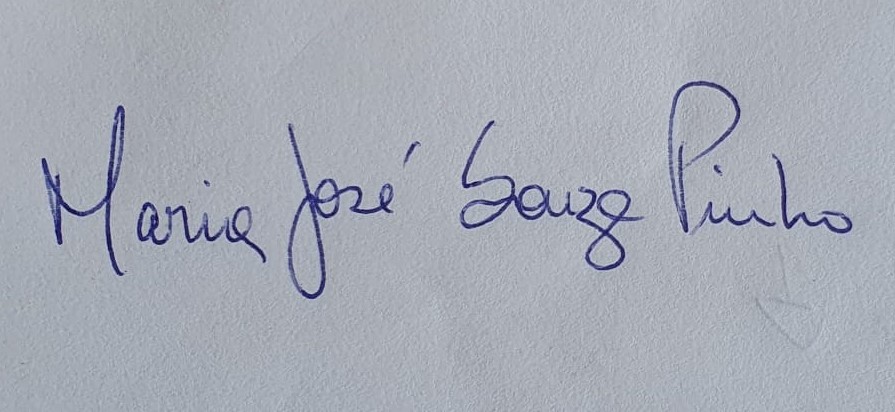 Maria José Souza Pinho